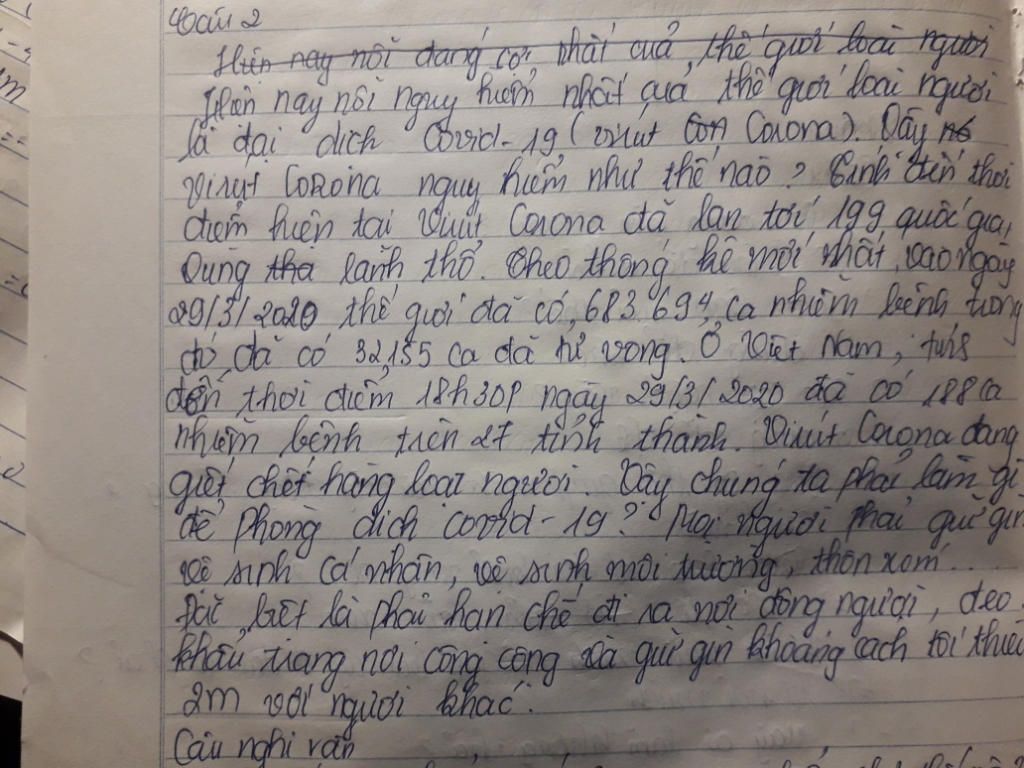 Câu 2
Hiện nay nỗi đang cơi nhất cuả, thế giơí loài người
Hiện nay nỗi nguy hiểm nhất quả thế giơí loài người
là đại dịch Covid-19 (virút Con Corona). Vậy nó
virut Corona nguy hiểm như thế nào? Tính đến thời
điểm hiện tại Virút Corona đã lan tơí 199 quốc gia,
Vùng tha lãnh thổ. Theo thống kê mới nhất, vào ngày
29/3/2020 thế giơí đã có, 683.694, ca nhiễm bệnh trong
đó, đã có 32,155 ca đã tử vong. Ở Việt Nam, tính
đến thời điểm 18h30P ngày 29/3/2020 đã có 188 ca
nhiễm bệnh trên 27 tỉnh thành. Virút Corona đang
giết chết hàng loạt người. Vậy chúng ta phải làm gì
để phòng dịch covid-19? Mọi người phải giữ gìn
vệ sinh cá nhân, vệ sinh môi trường, thôn xóm...
Đặc biệt là phải hạn chế đi ra nơi đông người, đeo
khẩu trang nơi công cộng và giữ gìn khoảng cách tối thiểu
2m với người khác.
Câu nghi vấn